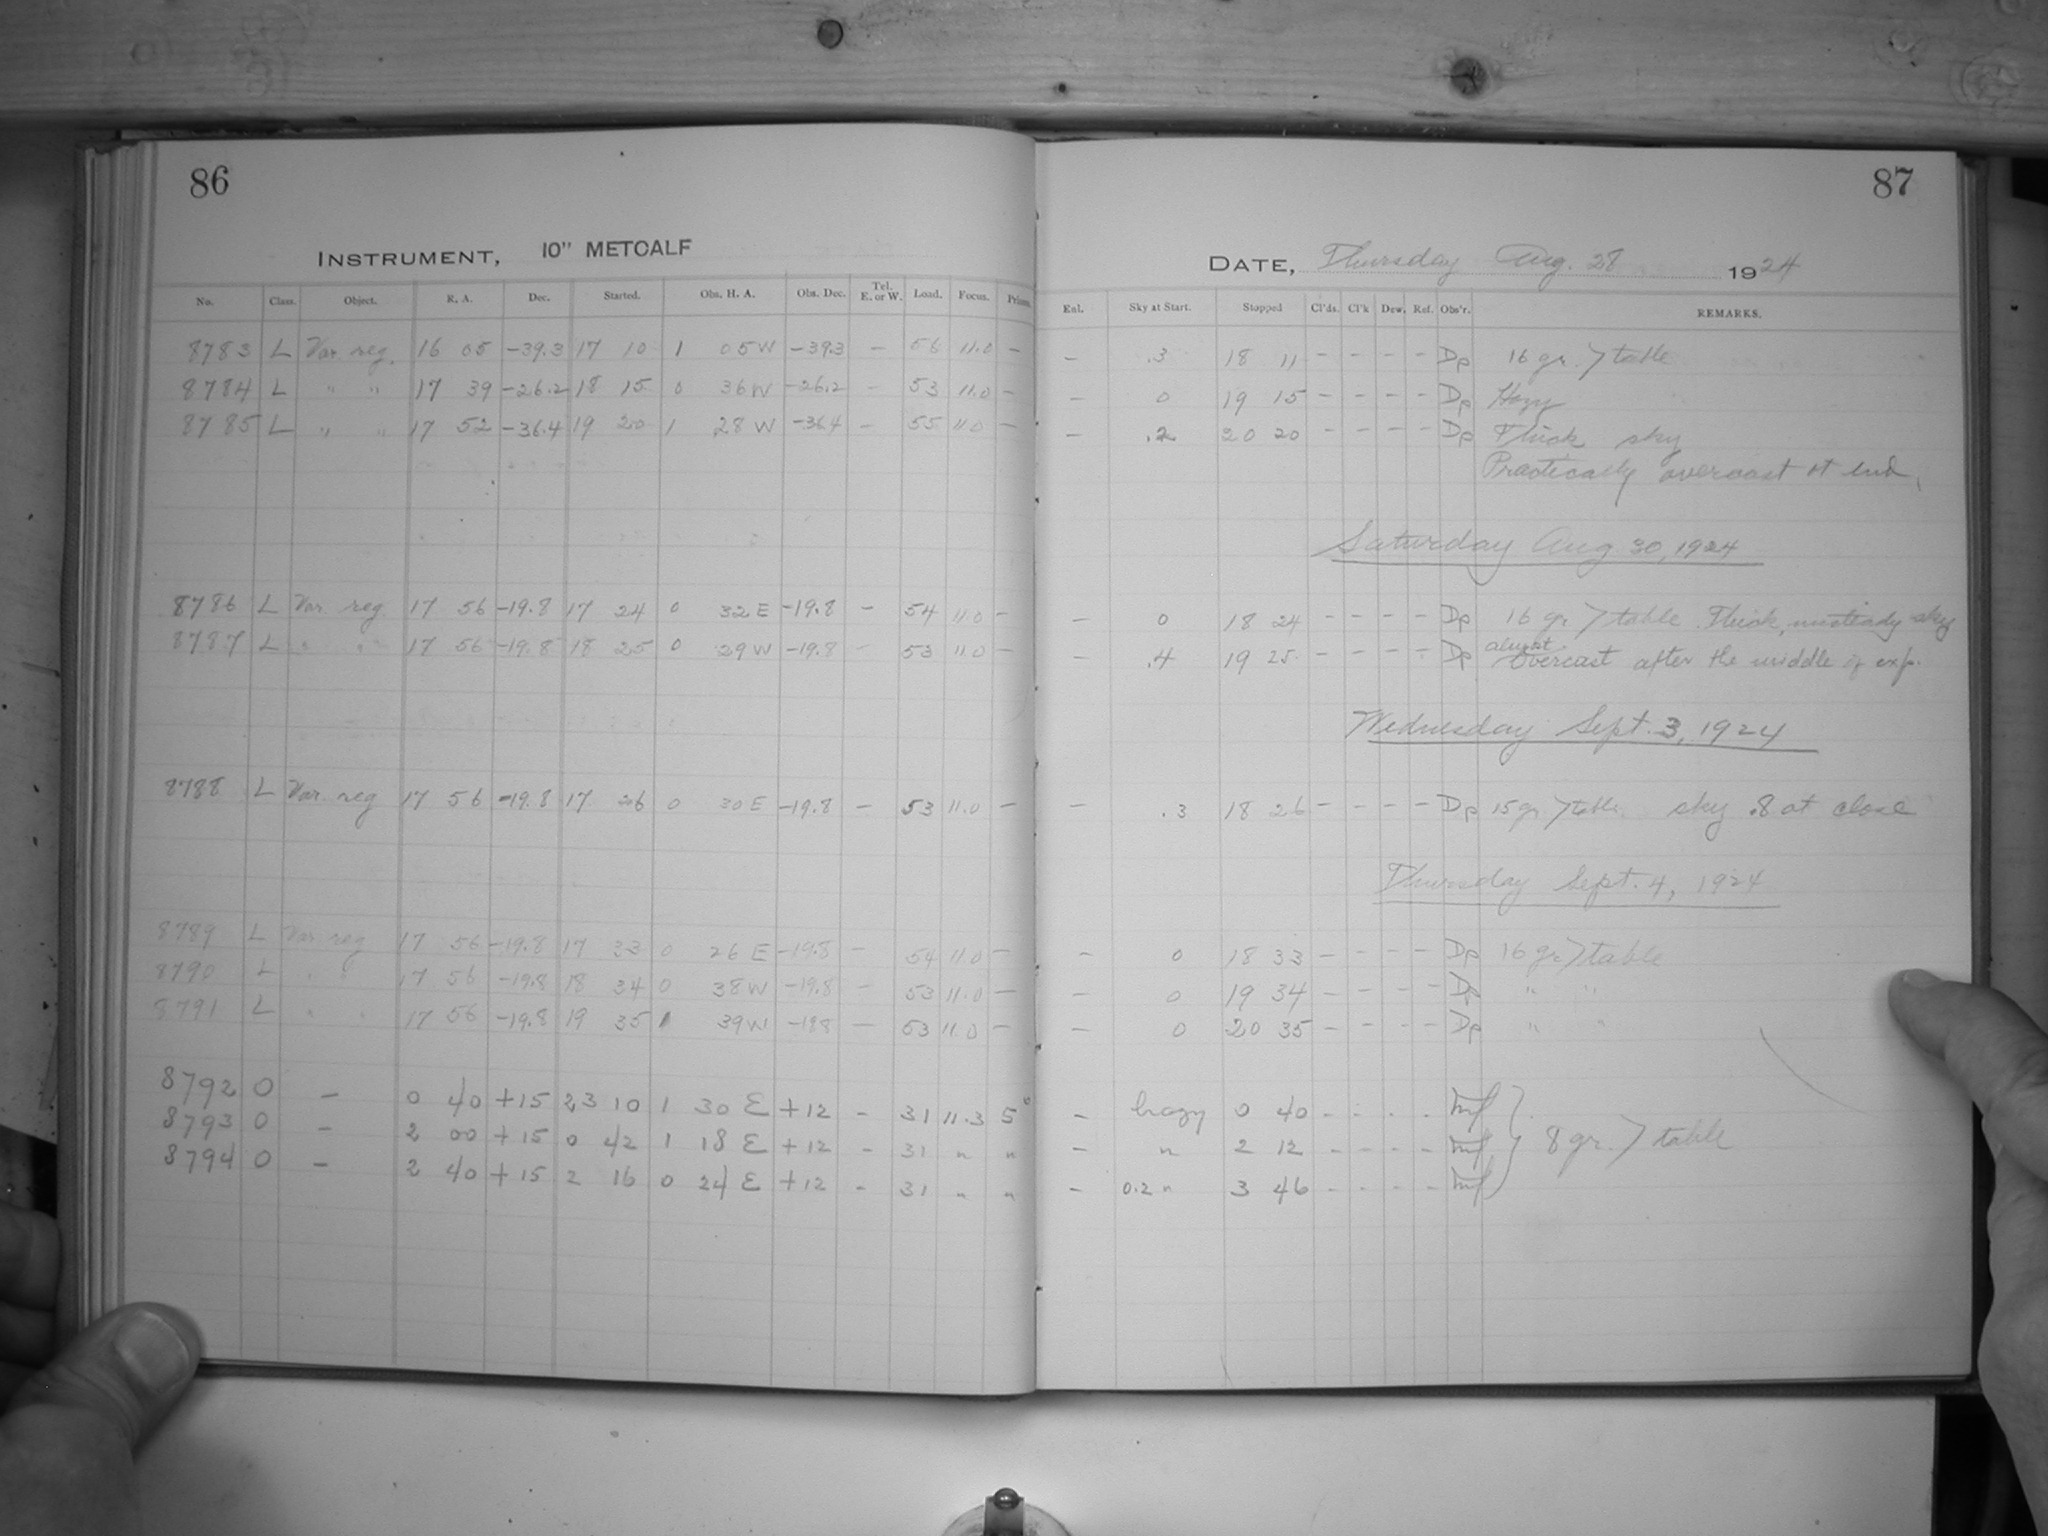 86
INSTRUMENT, 10" METCALF
No. Class. Object. R. A. Dec. Started. Obs. H. A. Obs. Dec. Tel. E. or W. Load. Focus. Prism.
8783 L Var reg. 16 05 -39.3 17 10 1 05 W -39.3 - 56 11.0 -
8784 L " " 17 39 -26.2 18 15 0 36 W -26.2 - 53 11.0 -
8785 L " " 17 52 -36.4 19 20 1 28 W -36.4 - 55 11.0 -
8786 L Var. reg 17 56 -19.8 17 24 0 32 E -19.8 - 54 11.0 -
8787 L " " 17 56 -19.8 18 25 0 29 W -19.8 - 53 11.0 -
8788 L Var. reg 17 56 -19.8 17 26 0 30 E -19.8 - 53 11.0 -
8789 L Var reg 17 56 -19.8 17 33 0 26 E -19.8 - 54 11.0 -
8790 L " " 17 56 -19.8 18 34 0 38 W -19.8 - 53 11.0 -
8791 L " " 17 56 -19.8 19 35 1 39 W -19.8 - 53 11.0 -
8792 O - 0 40 +15 23 10 1 30 E +12 - 31 11.3 5°
8793 O - 2 00 +15 0 42 1 18 E +12 - 31 " "
8794 O - 2 40 +15 2 16 0 24 E +12 - 31 " "
87
DATE, Thursday Aug. 28 1924
Enl. Sky at Start. Stopped Cl'ds. Cl'k Dew. Ref. Obs'r. REMARKS.
- .3 18 11 - - - - Dp 16 gr. > table
- 0 19 15 - - - - Dp Hazy
- .2 20 20 - - - - Dp Thick sky
Practically overcast at end.
Saturday Aug 30, 1924
- 0 18 24 - - - - Dp 16 gr > table. Thick, unsteady sky
- .4 19 25 - - - - Dp almost Overcast after the middle of exp.
Wednesday Sept. 3, 1924
- .3 18 26 - - - - Dp 15 gr > table. sky .8 at close
Thursday Sept. 4, 1924
- 0 18 33 - - - - Dp 16 gr > table
- 0 19 34 - - - - Dp " "
- 0 20 35 - - - - Dp " "
- hazy 0 40 - - - -
- " 2 12 - - - - 8 gr. > table
- 0.2 " 3 46 - - - -